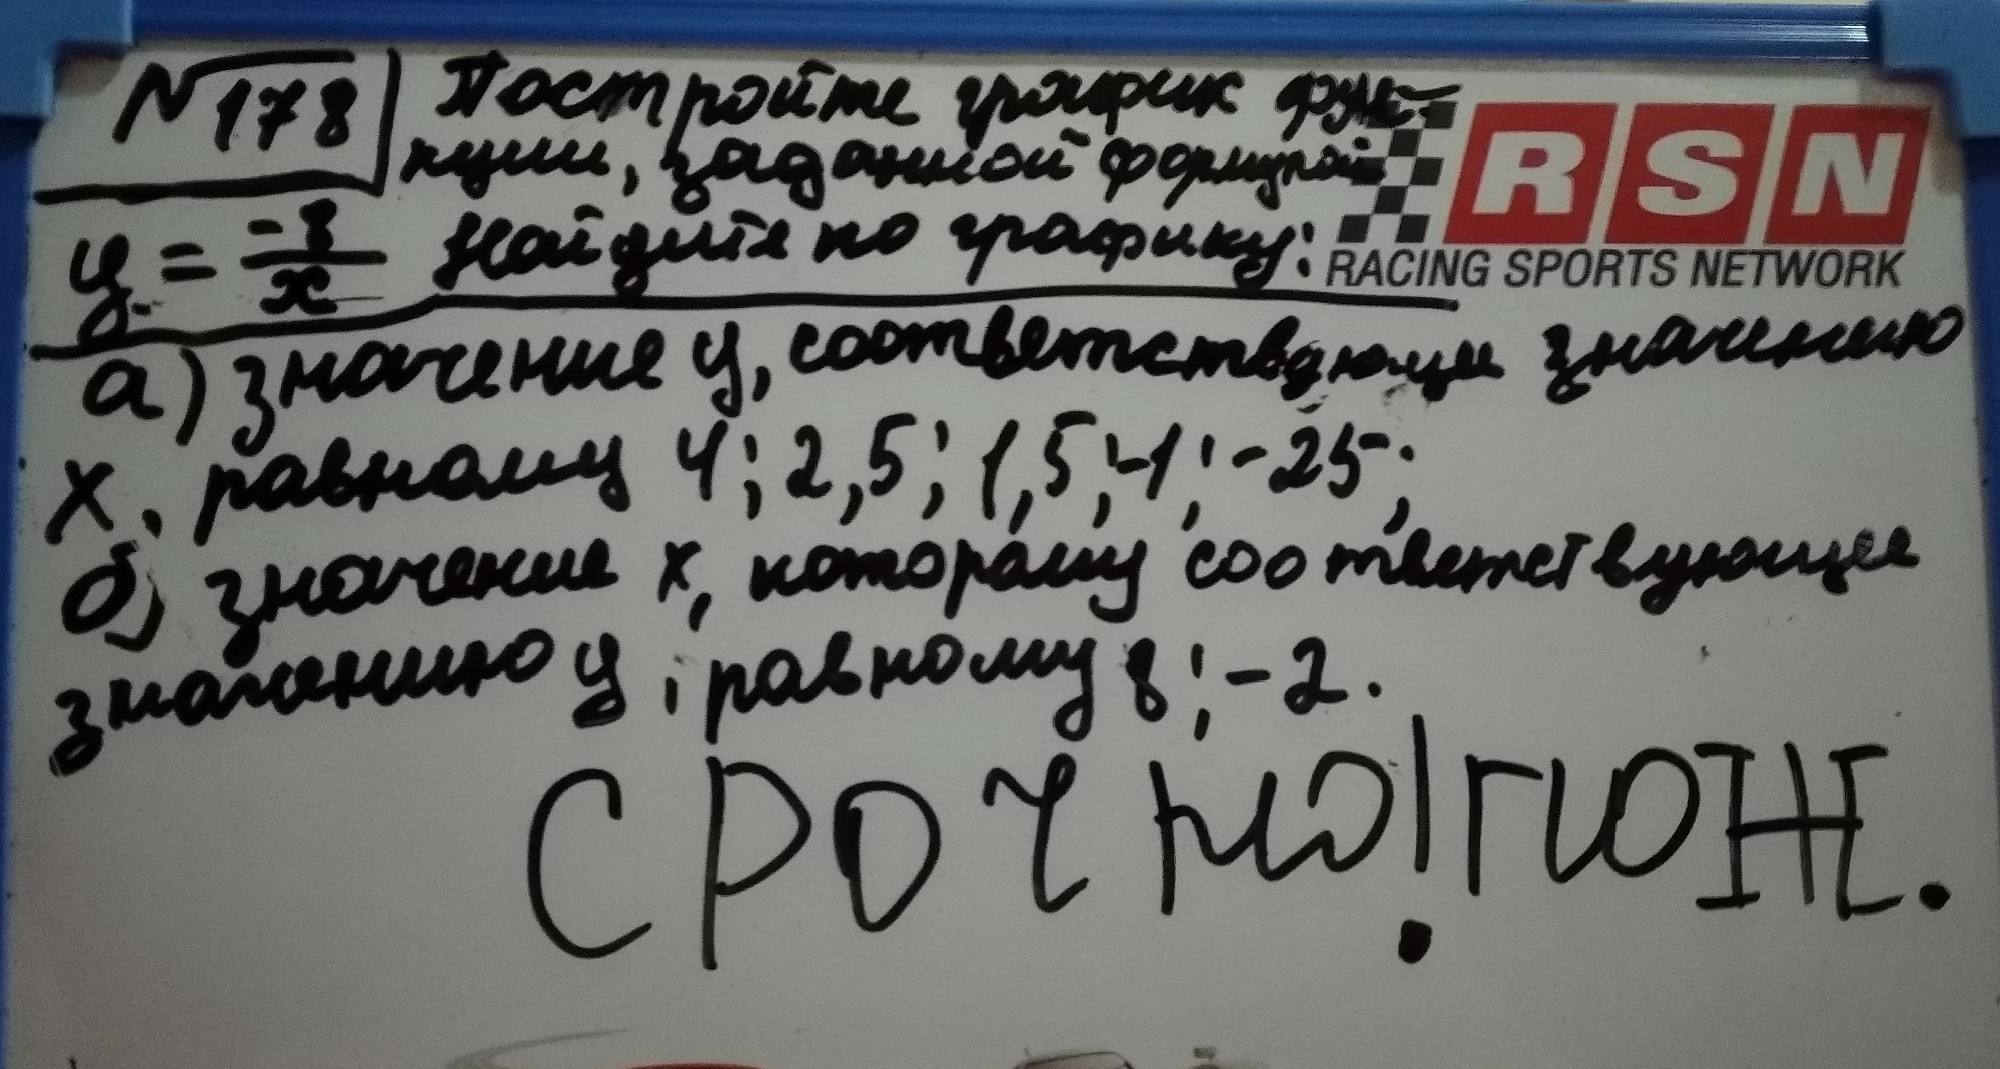 №178 Постройте график функ-
ции, заданной формулой
y = -8/x Найдите по графику:
RSN
RACING SPORTS NETWORK
а) значение y, соответствующи значению
x, равному 4; 2,5; 1,5; -1; -25;
б) значение x, которому соответствующее
значению y, равному 8; -2.
СРОЧНО! ПОЖ.